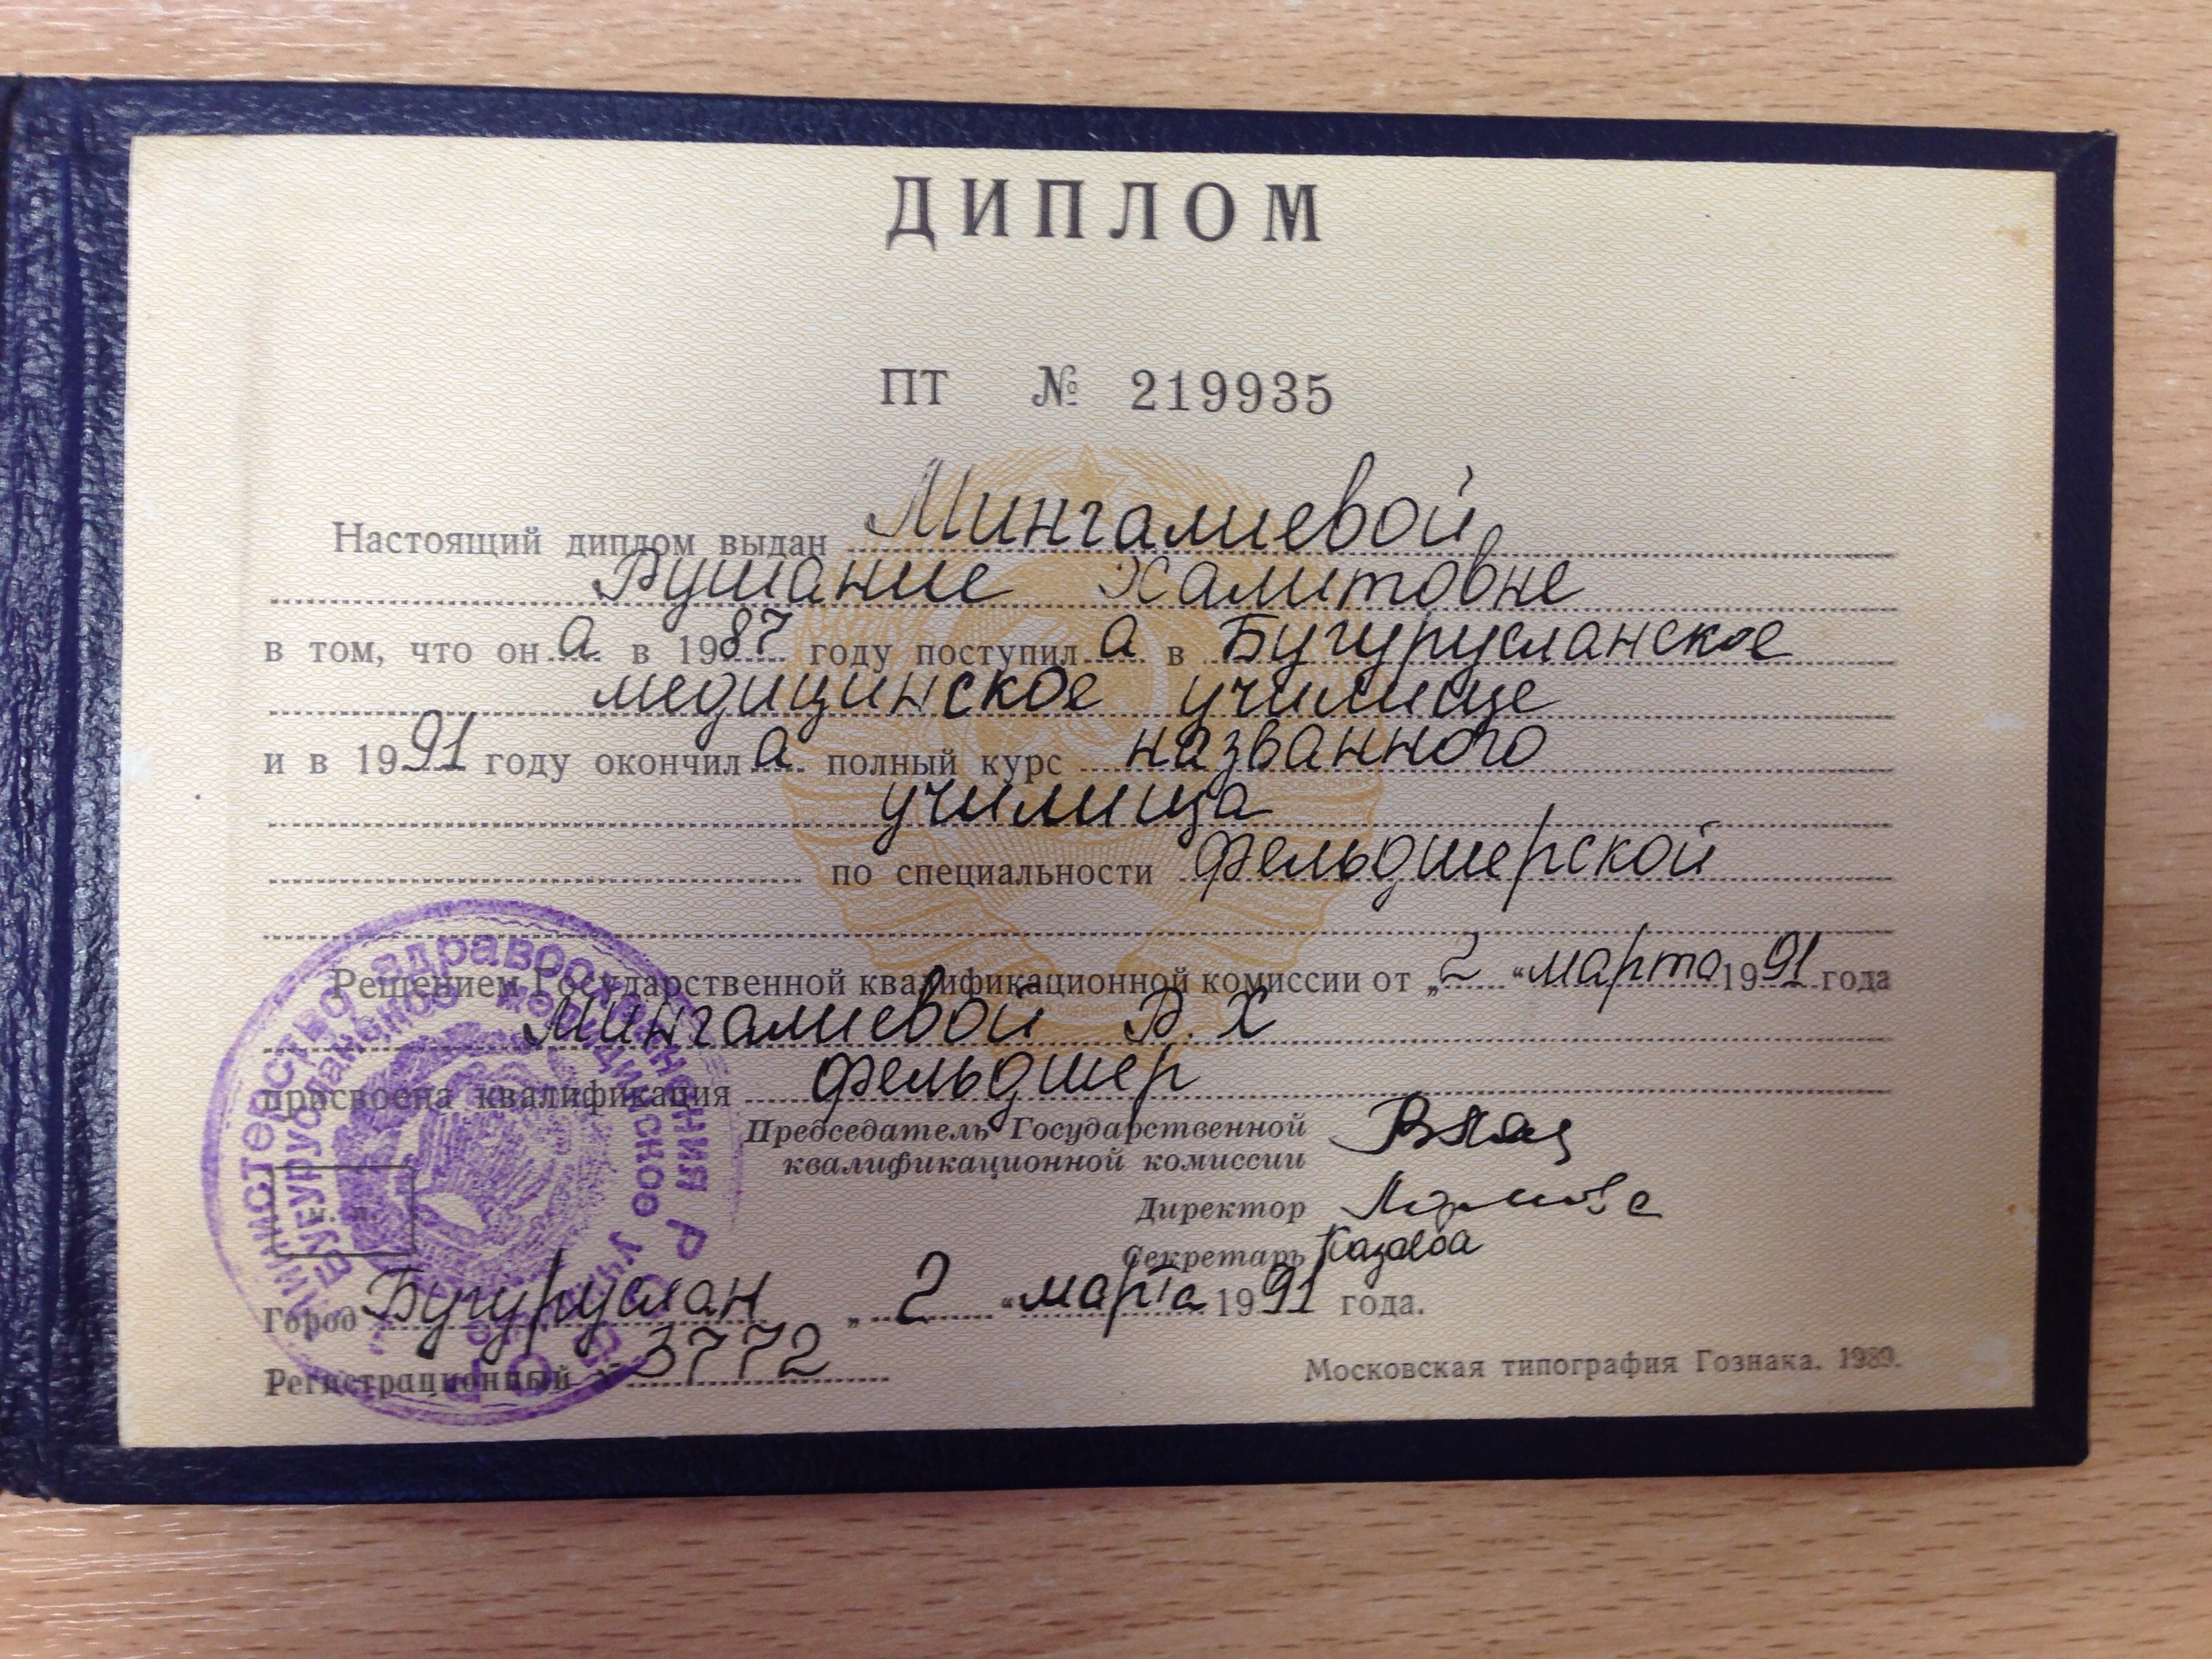 ДИПЛОМ
ПТ № 219935
Настоящий диплом выдан Мингалиевой
Рушание Хамитовне
в том, что он а в 1987 году поступил а в Бугурусланское
медицинское училище
и в 1991 году окончил а полный курс названного
училища
по специальности фельдшерской
Решением Государственной квалификационной комиссии от „2“ марта 1991 года
Мингалиевой Р. Х
присвоена квалификация фельдшер
Председатель Государственной
квалификационной комиссии
Директор
Секретарь
Город Бугуруслан „2“ марта 1991 года.
Регистрационный № 3772
Московская типография Гознака. 1989.
Министерство здравоохранения РСФСР
Бугурусланское медицинское училище
м. п.